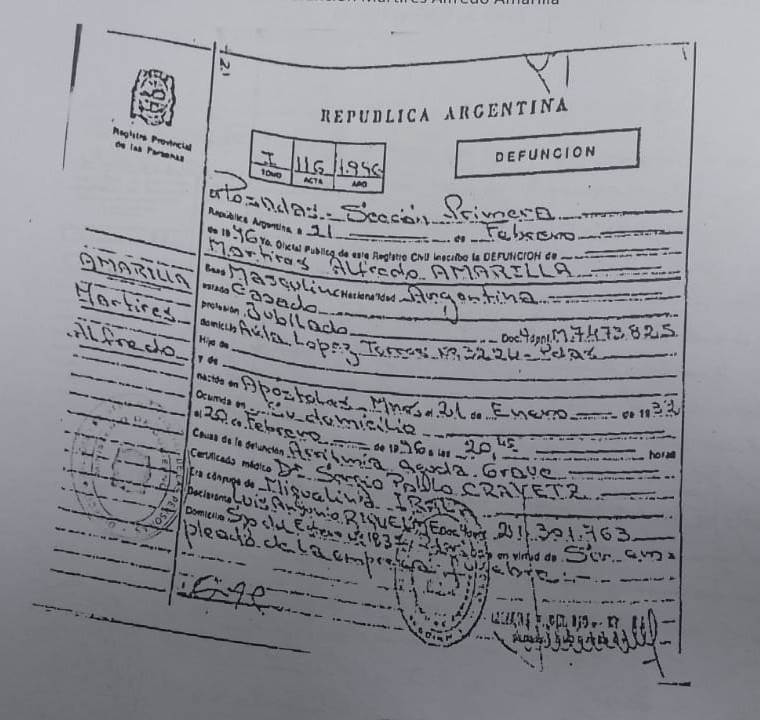 Martires Alfredo Amarilla
REPUBLICA ARGENTINA
Registro Provincial
de las Personas
I 116 1.996
TOMO ACTA AÑO
DEFUNCION
en Posadas - Sección Primera
República Argentina a 21 de Febrero
de 1996 Yo, Oficial Público de este Registro Civil inscribo la DEFUNCION de
Martires Alfredo AMARILLA
AMARILLA
Martires
Alfredo
Sexo Masculino Nacionalidad Argentina
estado Casado
profesión Jubilado Doc. M7473.825
domicilio Avda Lopez Torres Nº 3224 - Pdas
Hijo de
y de
nacido en Apostoles - Mnes el 21 de Enero de 1932
Ocurrida en su domicilio
el 20 de Febrero de 1996 a las 20,45 horas
Causa de la defunción Arritmia aguda Grave
Certificado médico Dr Sergio Pablo CRAVETZ
Era cónyuge de Miguelina
Declarante Luis Antonio RIQUELME Doc. 21.301.763
Domicilio en virtud de Ser em
pleado de la empresa